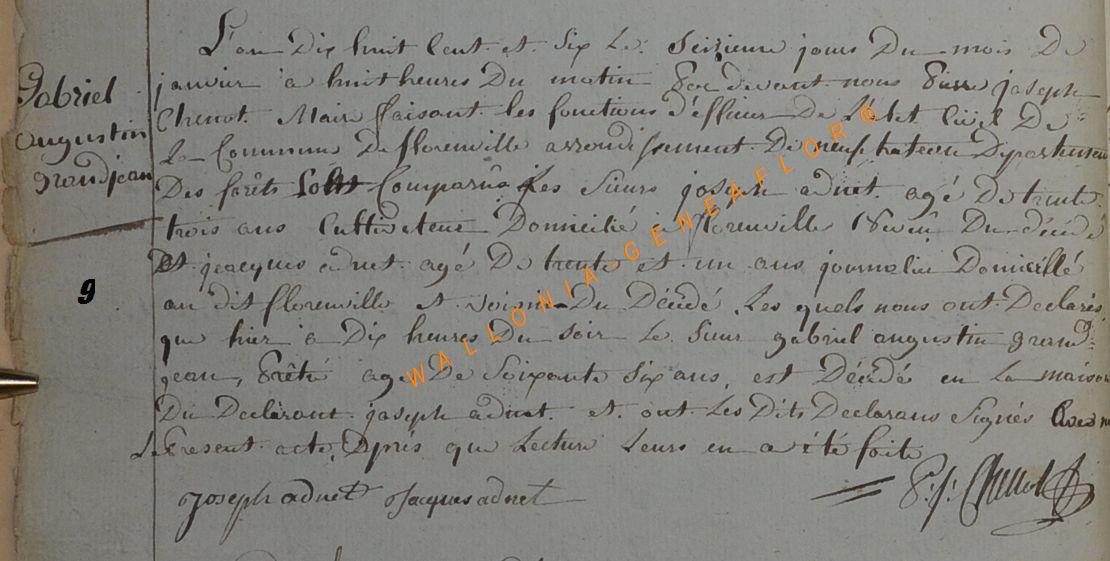 Gabriel
augustin
grandjean
9
L'an Dix huit Cent et Six Le Seizieme jours Du mois De
janvier à huit heures Du matin Par devant nous Pierre joseph
Chenot Maire faisant les fonctions d'efficier De L'état Civil De
La Commune De florenville arrondissement De neufchateau Departement
Des forêts Comparûs Les Sieurs joseph adnet agé De trente
trois ans Cultivateur Domicilié à florenville Du décédé
Et jacques adnet agé De trente et un ans journalier Domicillé
au dit florenville et voisin Du Décédé, Les quels nous ont Declarés
que hier à Dix heures Du soir Le Sieur gabriel augustin grand
jean, Prêtre agé De Soixante Six ans, est Décédé en La maison
Du Declarant joseph adnet et ont Les Dits Declarans Signés Avec n
Le Present acte, Après que Lecture Leurs en a été faite
Joseph adnet Jacques adnet P. j. Chenot
WALLONIA GENEAFLOR ©